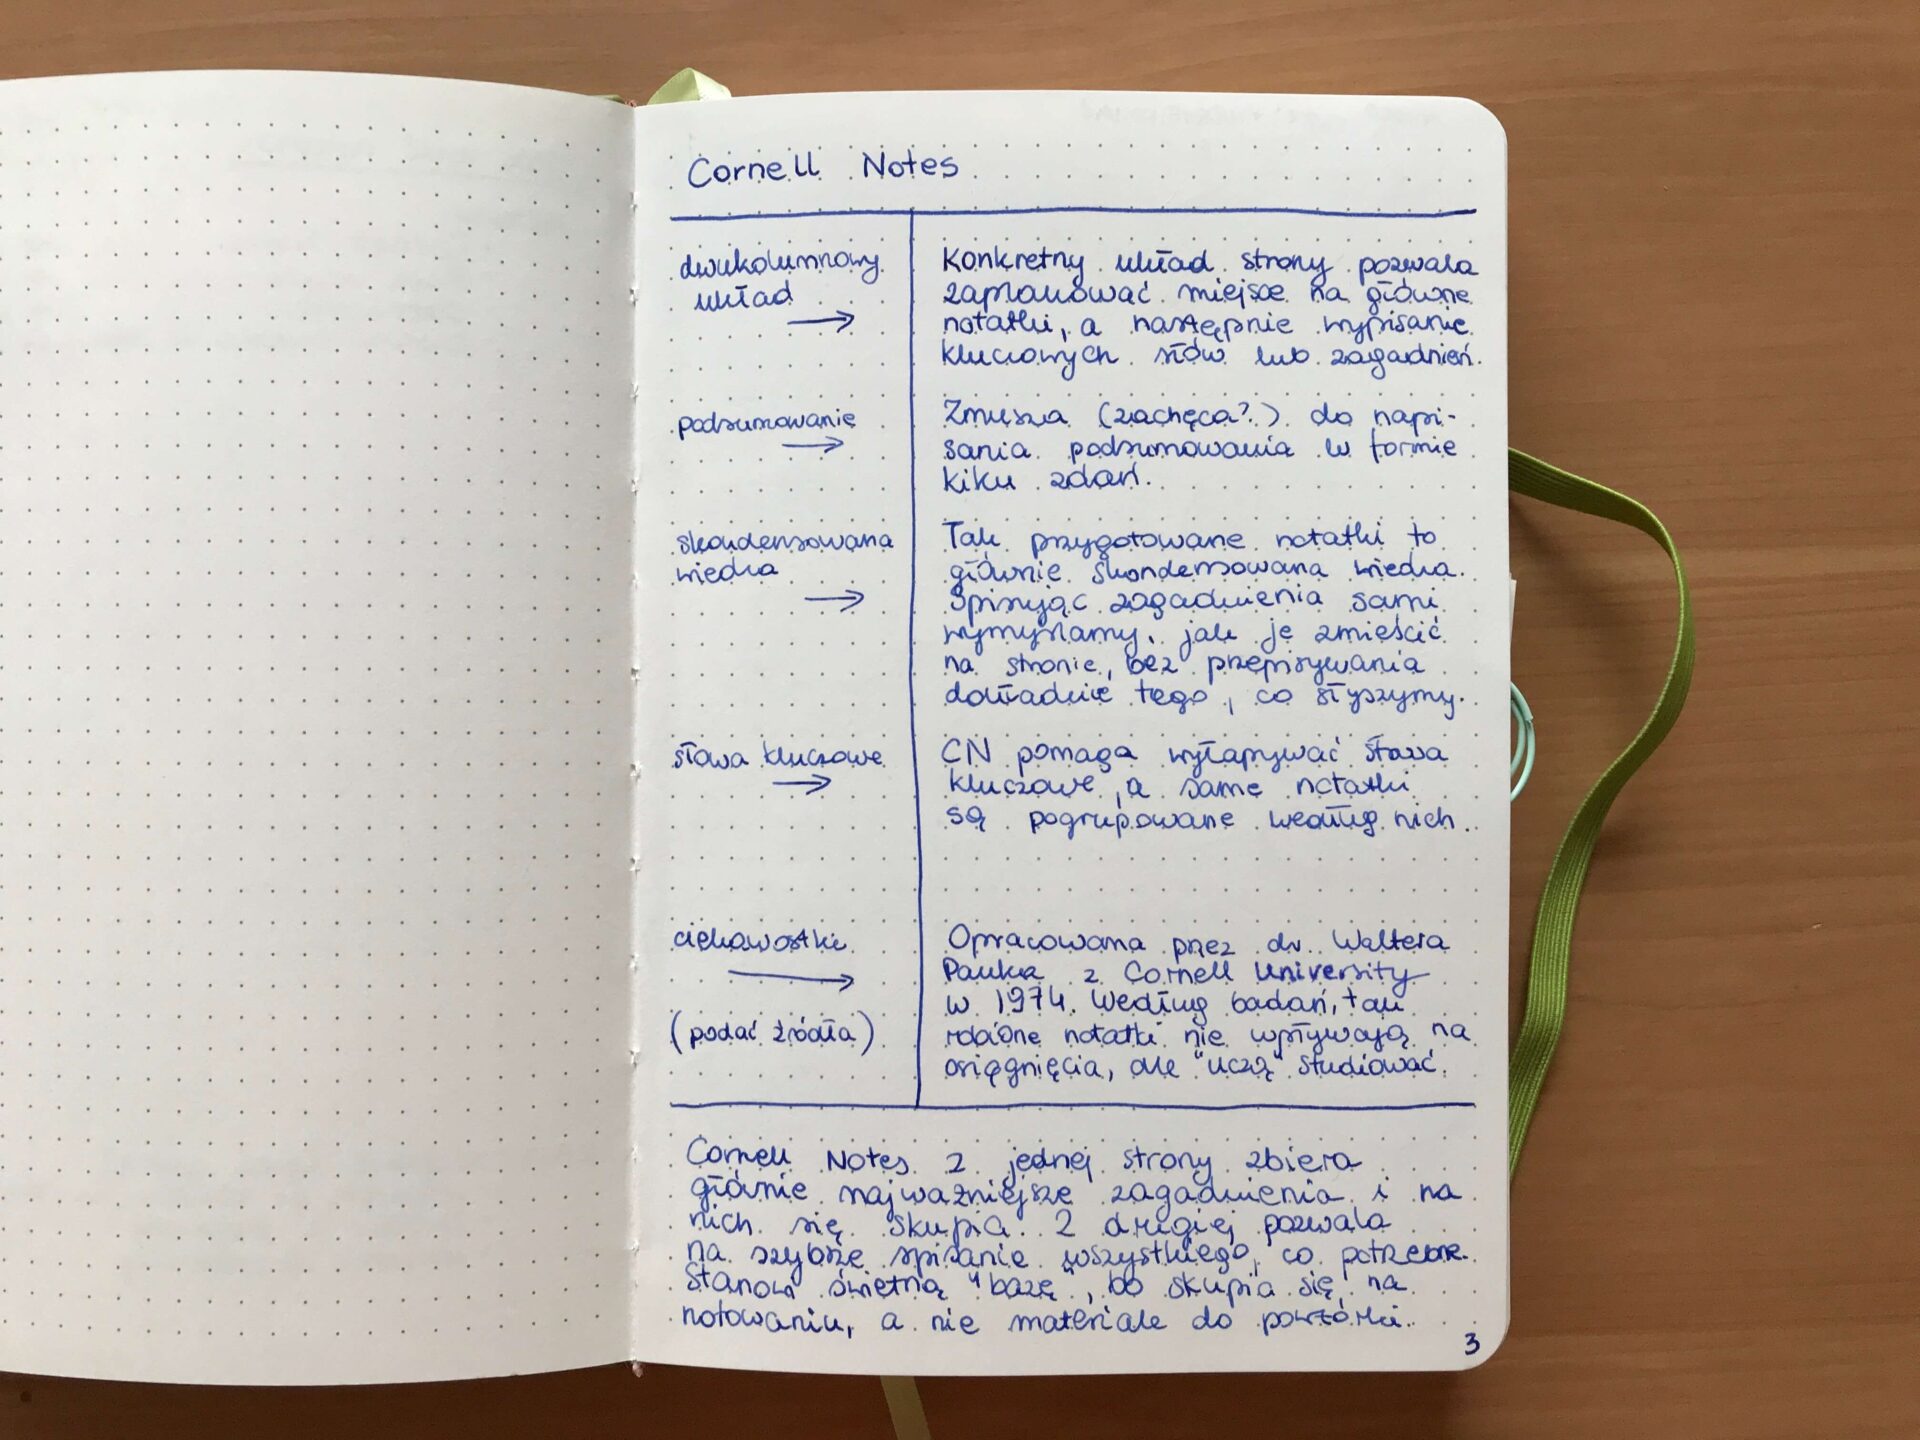 Cornell Notes
dwukolumnowy
układ
Konkretny układ strony pozwala
zaplanować miejsce na główne
notatki, a następnie wypisanie
kluczowych słów lub zagadnień.
podsumowanie
Zmusza (zachęca?) do napi-
sania podsumowania w formie
kilku zdań.
skondensowana
wiedza
Tak przygotowane notatki to
głównie skondensowana wiedza.
Spisując zagadnienia sami
wymyślamy, jak je zmieścić
na stronie, bez przepisywania
dokładnie tego, co słyszymy.
słowa kluczowe
CN pomaga wyłapywać słowa
kluczowe, a same notatki
są pogrupowane według nich.
ciekawostki
(podać źródła)
Opracowana przez dr. Waltera
Pauka z Cornell University
w 1974. Według badań, tak
robione notatki nie wpływają na
osiągnięcia, ale "uczą" studiować.
Cornell Notes z jednej strony zbiera
głównie najważniejsze zagadnienia i na
nich się skupia. Z drugiej pozwala
na szybsze spisanie wszystkiego, co potrzebne.
Stanowi świetną "bazę", bo skupia się na
notowaniu, a nie materiale do powtórki.
3